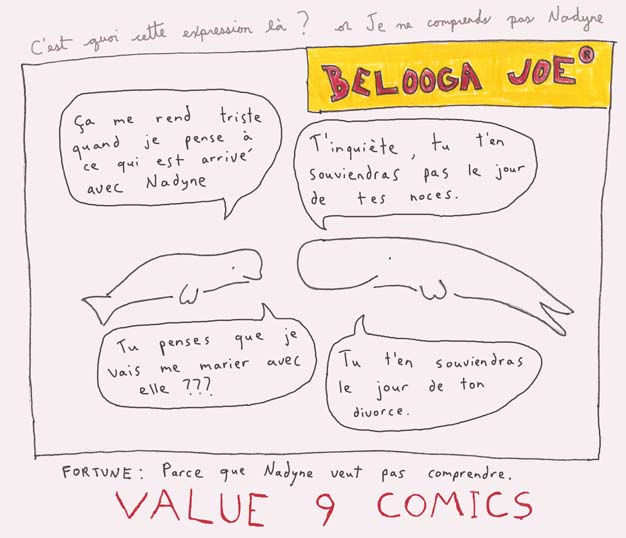 C'est quoi cette expression là ? or Je ne comprends pas Nadyne
BELOOGA JOE®
Ça me rend triste
quand je pense à
ce qui est arrivé
avec Nadyne
T'inquiète, tu t'en
souviendras pas le jour
de tes noces.
Tu penses que je
vais me marier avec
elle ???
Tu t'en souviendras
le jour de ton
divorce.
FORTUNE : Parce que Nadyne veut pas comprendre.
VALUE 9 COMICS